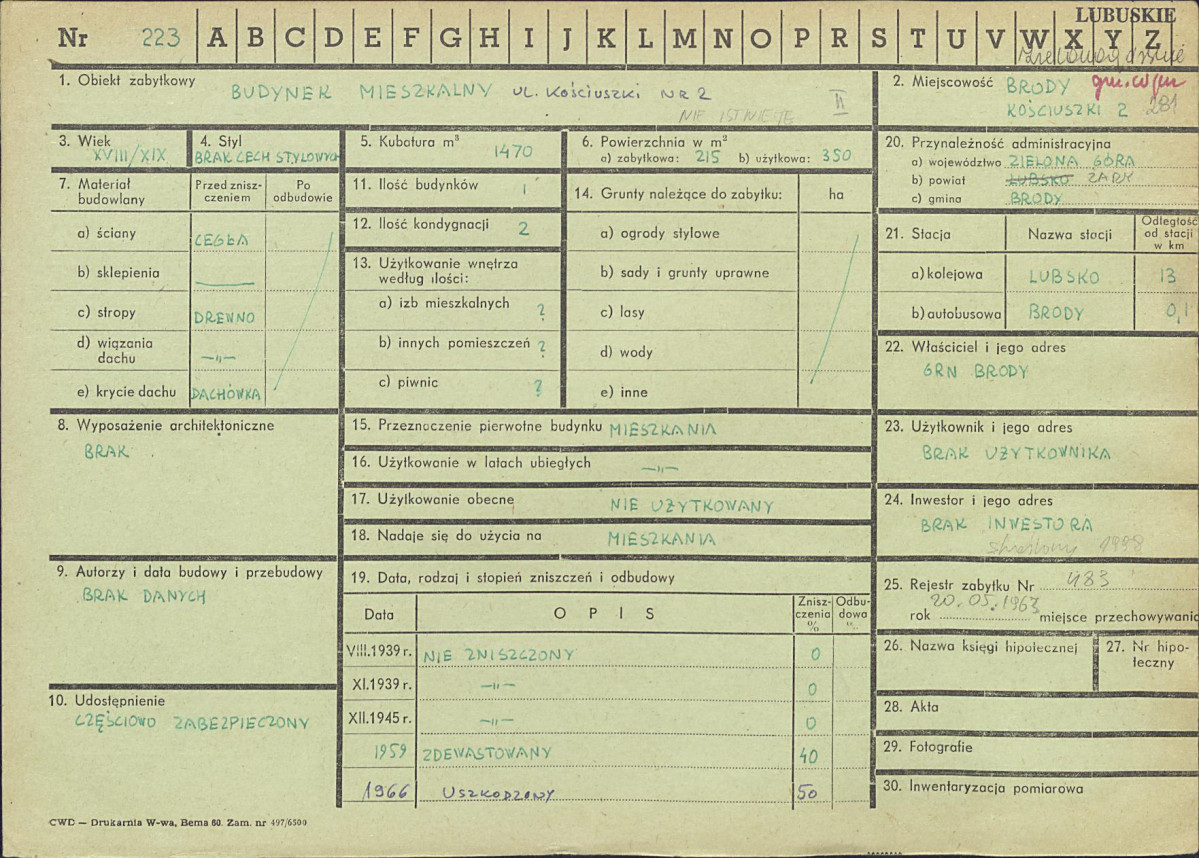 LUBUSKIE
Nr 223 A B C D E F G H I J K L M N O P R S T U V W X Y Z
1. Obiekt zabytkowy BUDYNEK MIESZKALNY UL. KOŚCIUSZKI NR 2
NIE ISTNIEJE
II
2. Miejscowość BRODY
KOŚCIUSZKI 2 281
3. Wiek
XVIII/XIX
4. Styl
BRAK CECH STYLOWYCH
5. Kubatura m³ 1470
6. Powierzchnia w m²
a) zabytkowa: 215 b) użytkowa: 350
7. Materiał budowlany
Przed zniszczeniem
Po odbudowie
a) ściany CEGŁA
b) sklepienia —
c) stropy DREWNO
d) wiązania dachu —"—
e) krycie dachu DACHÓWKA
8. Wyposażenie architektoniczne
BRAK
9. Autorzy i data budowy i przebudowy
BRAK DANYCH
10. Udostępnienie
CZĘŚCIOWO ZABEZPIECZONY
11. Ilość budynków 1
12. Ilość kondygnacji 2
13. Użytkowanie wnętrza
według ilości:
a) izb mieszkalnych ?
b) innych pomieszczeń ?
c) piwnic ?
14. Grunty należące do zabytku: ha
a) ogrody stylowe
b) sady i grunty uprawne
c) lasy
d) wody
e) inne
15. Przeznaczenie pierwotne budynku MIESZKANIA
16. Użytkowanie w latach ubiegłych —"—
17. Użytkowanie obecne NIE UŻYTKOWANY
18. Nadaje się do użycia na MIESZKANIA
19. Data, rodzaj i stopień zniszczeń i odbudowy
Data OPIS Zniszczenia % Odbudowa %
VIII.1939 r. NIE ZNISZCZONY 0
XI.1939 r. —"— 0
XII.1945 r. —"— 0
1959 ZDEWASTOWANY 40
1966 USZKODZONY 50
20. Przynależność administracyjna
a) województwo ZIELONA GÓRA
b) powiat LUBSKO ŻARY
c) gmina BRODY
21. Stacja Nazwa stacji Odległość od stacji w km
a) kolejowa LUBSKO 13
b) autobusowa BRODY 0,1
22. Właściciel i jego adres
GRN BRODY
23. Użytkownik i jego adres
BRAK UŻYTKOWNIKA
24. Inwestor i jego adres
BRAK INWESTORA
skreślony 1998
25. Rejestr zabytku Nr 483
rok 20.05.1963 miejsce przechowywania
26. Nazwa księgi hipotecznej
27. Nr hipoteczny
28. Akta
29. Fotografie
30. Inwentaryzacja pomiarowa
CWD — Drukarnia W-wa, Bema 60. Zam. nr 497/6500